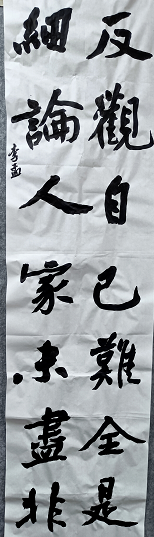 反觀自己難全是
細論人家未盡非